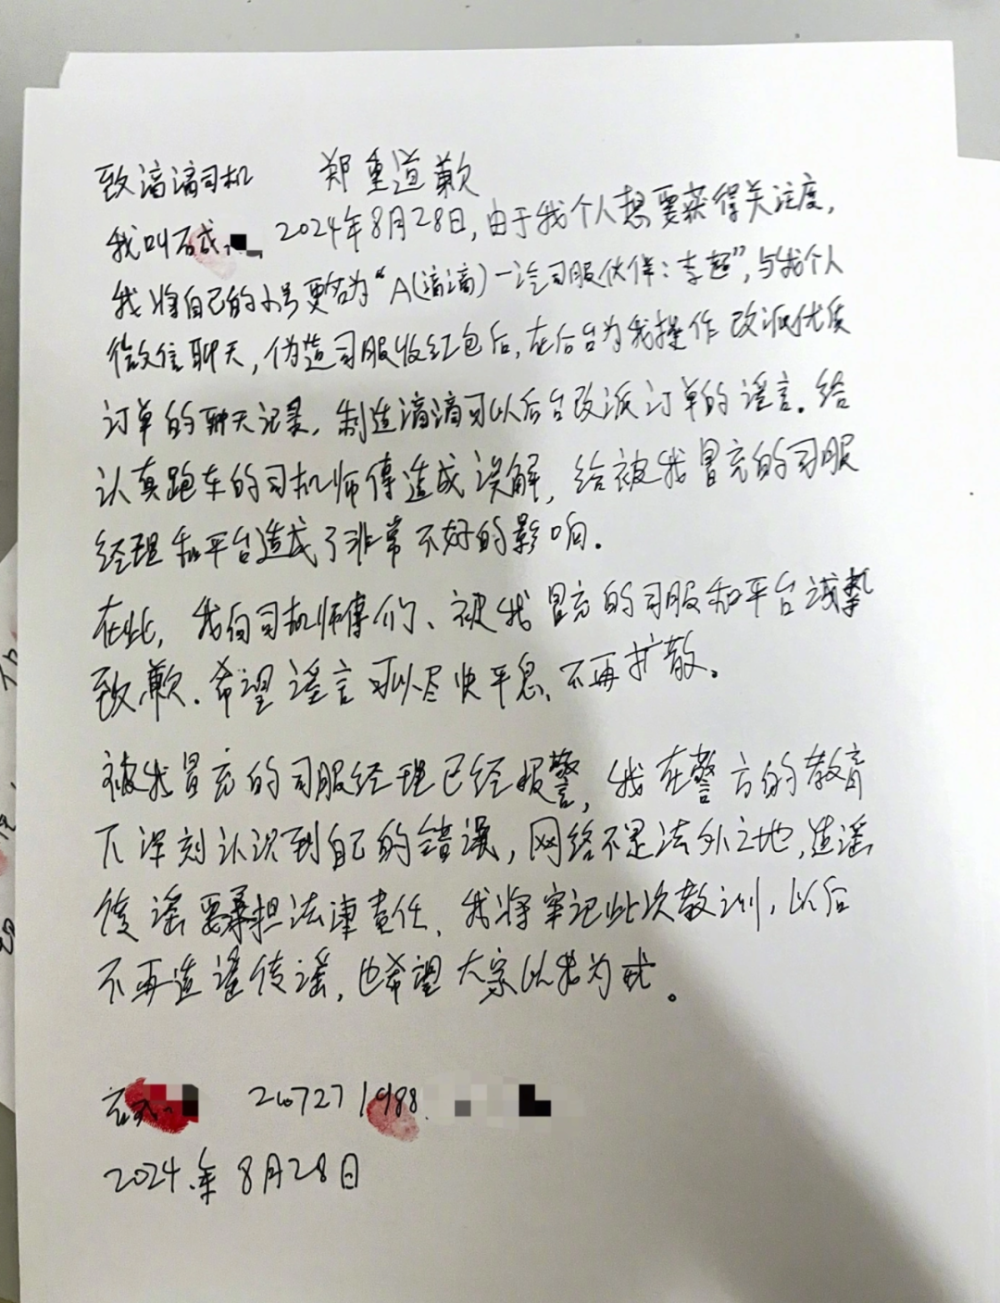 致滴滴司机 郑重道歉
我叫石成 2024年8月28日,由于我个人想要获得关注度,
我将自己的小号更名为“A(滴滴)一汽司服伙伴:李超”,与我个人
微信聊天,伪造司服收红包后,在后台为我操作改派优质
订单的聊天记录,制造滴滴可以后台改派订单的谣言.给
认真跑车的司机师傅造成误解,给被我冒充的司服
经理和平台造成了非常不好的影响.
在此,我向司机师傅们、被我冒充的司服和平台诚挚
致歉.希望谣言可以尽快平息、不再扩散.
被我冒充的司服经理已经报警,我在警方的教育
下深刻认识到自己的错误,网络不是法外之地,造谣
传谣要承担法律责任、我将牢记此次教训,以后
不再造谣传谣,也希望大家以我为戒。
石成 210727 1988
2024.年8月28日